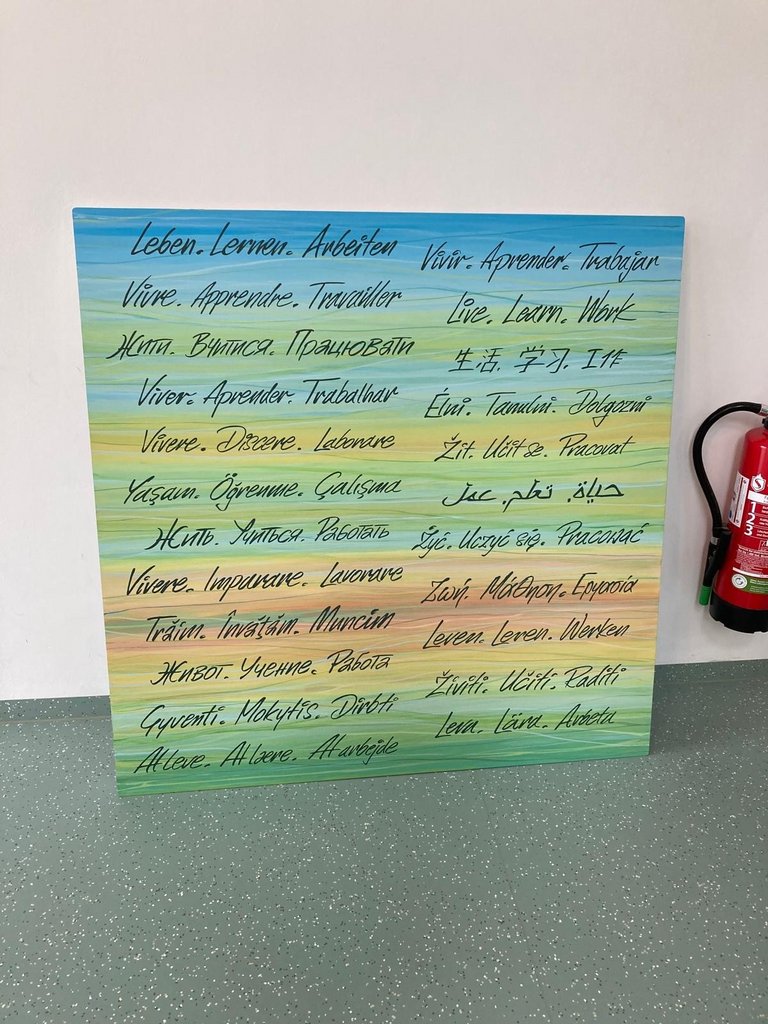 Leben. Lernen. Arbeiten
Vivre. Apprendre. Travailler
Жити. Вчитися. Працювати
Viver. Aprender. Trabalhar
Vivere. Discere. Laborare
Yaşam. Öğrenme. Çalışma
Жить. Учиться. Работать
Vivere. Imparare. Lavorare
Trăim. Învățăm. Muncim
Живот. Учение. Работа
Gyventi. Mokytis. Dirbti
At leve. At lære. At arbejde
Vivir. Aprender. Trabajar
Live. Learn. Work
生活. 学习. 工作
Élni. Tanulni. Dolgozni
Žít. Učit se. Pracovat
حياة. تعلم. عمل
Żyć. Uczyć się. Pracować
Ζωή. Μάθηση. Εργασία
Leven. Leren. Werken
Živiti. Učiti. Raditi
Leva. Lära. Arbeta
1
2
3